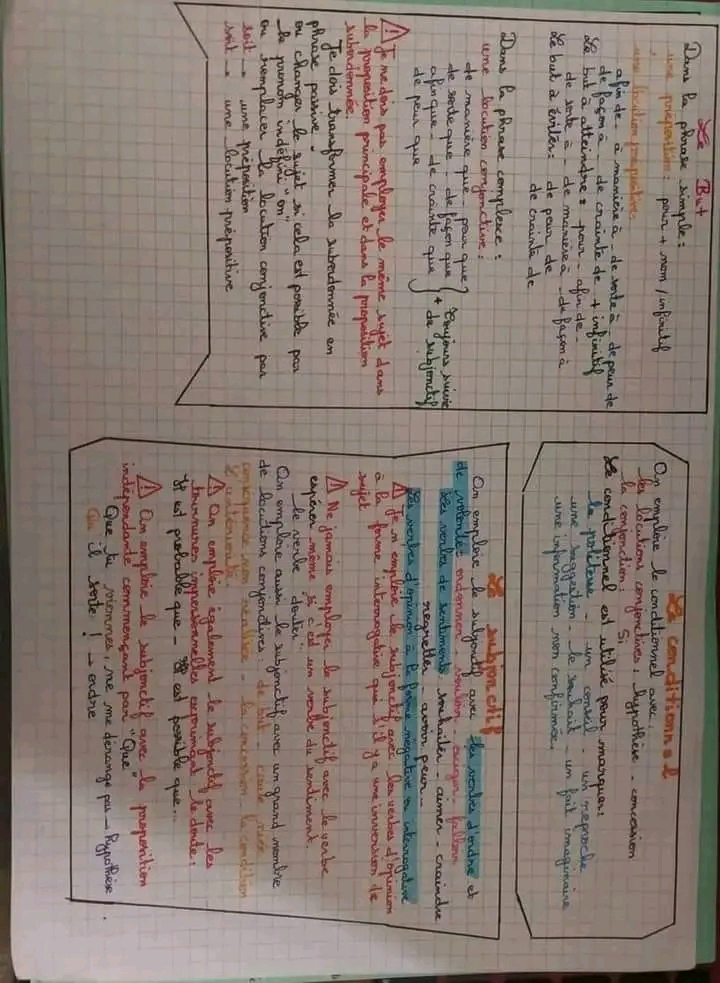 Le But
Dans la phrase simple :
une préposition : pour + nom / infinitif
une locution prépositive :
afin de - à manière à - de sorte à - de peur de
de façon à - de crainte de + infinitif
Le but à atteindre : pour - afin de -
de sorte à - de manière à - de façon à
Le but à éviter : de peur de
de crainte de
Dans la phrase complexe :
une locution conjonctive :
de manière que - pour que
de sorte que - de façon que
afin que - de crainte que
de peur que
toujours suivie
+ du subjonctif
⚠ Je ne dois pas employer le même sujet dans
la proposition principale et dans la proposition
subordonnée.
Je dois transformer la subordonnée en
phrase passive.
ou changer le sujet si cela est possible par
le pronom indéfini "on"
ou remplacer la locution conjonctive par
soit → une préposition
soit → une locution prépositive
Le conditionnel
On emploie le conditionnel avec :
les locutions conjonctives : hypothèse - concession
la conjonction : Si
Le conditionnel est utilisé pour marquer :
la politesse - un conseil - un reproche
une suggestion - le souhait - un fait imaginaire
une information non confirmée.
Le subjonctif
On emploie le subjonctif avec les verbes d'ordre et
de volonté : ordonner - vouloir - exiger - falloir
Les verbes de sentiments : souhaiter - aimer - craindre
regretter - avoir peur -
Les verbes d'opinion à la forme négative ou interrogative
⚠ Je n'emploie le subjonctif avec les verbes d'opinion
à la forme interrogative que s'il y a une inversion de
sujet
⚠ Ne jamais employer le subjonctif avec le verbe
espérer même si c'est un verbe du sentiment
le verbe "douter"
On emploie aussi le subjonctif avec un grand nombre
de locutions conjonctives : de but - cause niée
conséquence non réalisée - la concession - la condition
l'antériorité.
⚠ On emploie également le subjonctif avec les
tournures impersonnelles exprimant le doute :
Il est probable que - Il est possible que...
⚠ On emploie le subjonctif avec la proposition
indépendante commençant par "Que"
Que tu viennes, ne me dérange pas → hypothèse.
Qu'il sorte ! → ordre